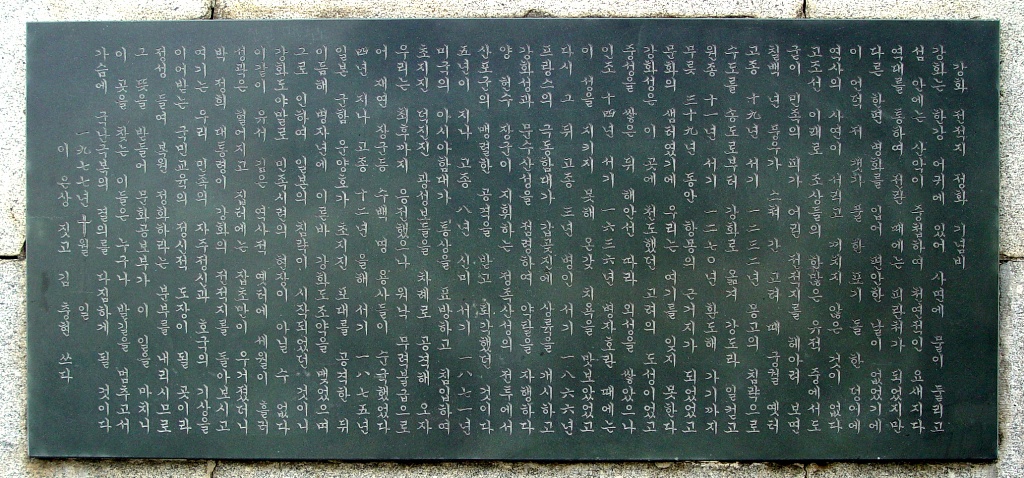 강화 전적지 정화 기념비
강화는 한강 어귀에 있어 사면에 물이 둘리고
섬 안에는 산악이 중첩하여 천연적인 요새지라
역대를 통하여 전란 때에는 피란처가 되었지만
다른 한편 입어 편안한 날이 없었기에
이 언덕 저 한 포기 풀 한
사연이 새겨지지 않은 것이 없다
고조선 이래로 조상들의 유적 중에서도
민족의 피가 어린 전적지를 헤아려 보면
칠백 년 고려 때
고종 十九년 서기 一二三二년 몽고의 침략으로
수도를 송도로부터 강화로 옮겨 강도라 일컫고
원종 十一년 서기 一二七〇년 환도에
무릇 三十九년 동안 항몽의 근거지가 되었었고
우리는 잊지 못한다
강화성은 이 곳에 천도했던 고려의 도성이었고
중성을 쌓은 뒤 해안선 따라 외성을 쌓았으나
인조 十四년 서기 一六三六년 병자호란 때에는
이 성을 지키지 못해 온갖 치욕을 맛보았었고
다시 그 뒤 고종 三년 병인 서기 一八六六년
프랑스의 극동함대가 갑곶진에 상륙하여
강화성과 문수산성을 점령하고 약탈을 자행하자
양헌수 장군이 지휘하는 정족산성의 전투에서
산포수의 맹렬한 공격을 받고 퇴각했던 것이다
五년이 지나 고종 八년 신미 서기 一八七一년
미국의 아시아함대가 통상을 요구하고 침입하여
초지진 덕진진 광성보들을 차례로 공격해 오자
우리는 최후까지 응전했으나 워낙 무력부족으로
어재연 장군 등 수백 명 용사들이 순국했었다
四년이 지나 고종 十二년 을해 서기 一八七五년
일본 군함 운양호가 초지진 포대를 공격한 뒤
이듬해 병자년에 이른바 강화도조약을 맺었으며
그로 인하여 일본의 침략이 시작되었던 것이니
강화도야말로 민족시련의 현장이 아닐 수 없다
이같이 유서 깊은 역사적 세월이 흘러
성곽은 헐어지고 진터에는 잡초만이 우거졌더니
박정희 대통령이 강화의 전적지를 돌아보시고
여기는 우리 민족의 자주정신과 호국의 기상을
이어받은 국민교육의 정신적 도장이 될 곳이라
정성 들여 복원 정화하라는 분부를 내리시므로
그 뜻을 받들어 문화공보부가 이 일을 마치니
이 곳을 찾는 이들은 누구나 발길을 멈추고서
가슴에 결의를 다짐하게 될 것이다
一九七七년 十월 일
이은상 짓고 김충현 쓰다